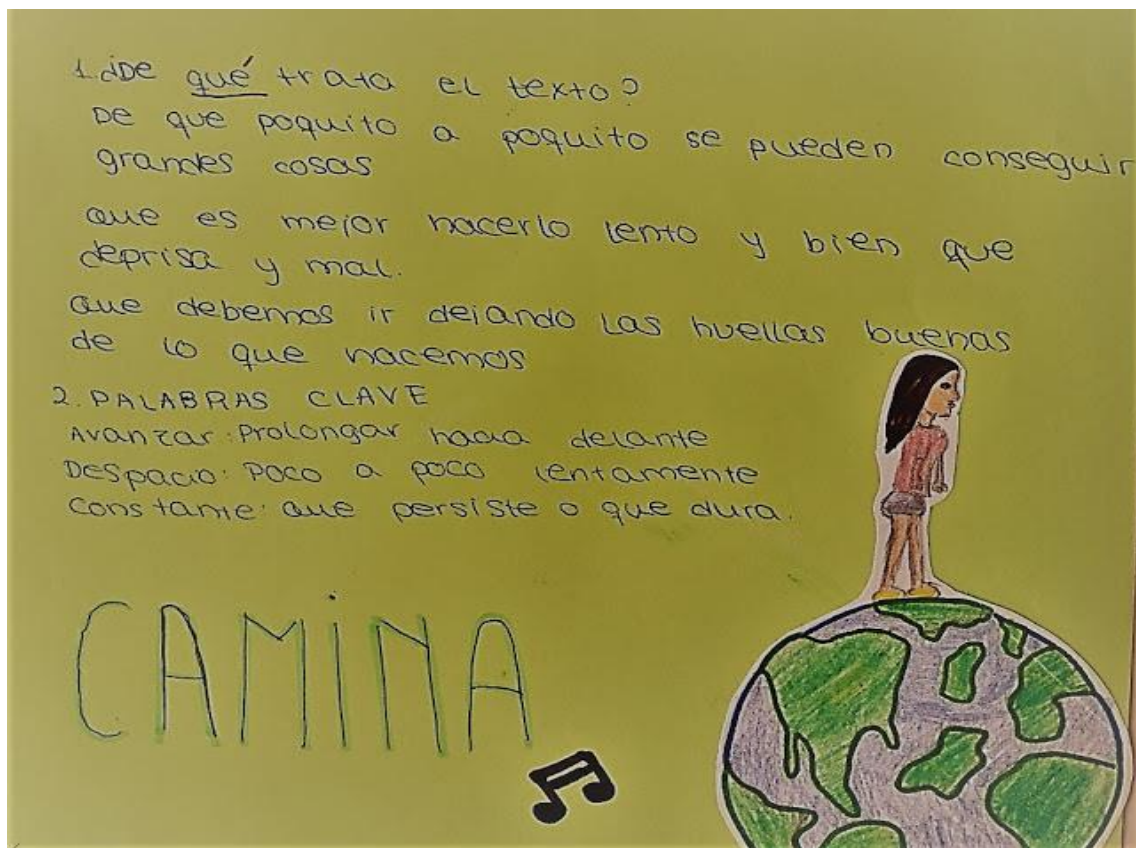 1. ¿De qué trata el texto?
De que poquito a poquito se pueden conseguir
grandes cosas
que es mejor hacerlo lento y bien que
deprisa y mal.
que debemos ir dejando las huellas buenas
de lo que hacemos
2. PALABRAS CLAVE
Avanzar: Prolongar hacia delante
Despacio: Poco a poco lentamente
Constante: que persiste o que dura.
CAMiNA